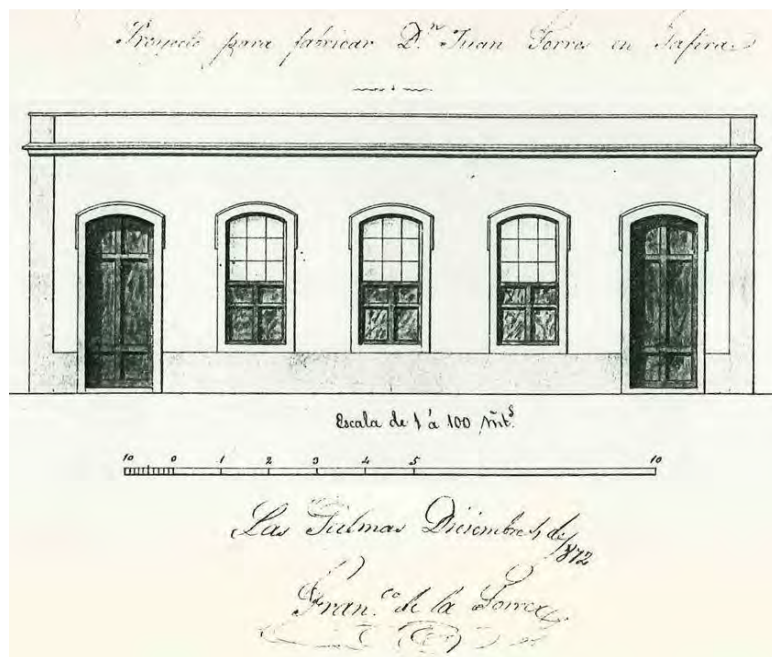 Proyecto para fabricar D.ⁿ Juan Torres en Tafira.
Escala de 1 á 100 Mtˢ.
10 0 1 2 3 4 5 10
Las Palmas Diciembre 4 de 1872
Fran.ᶜᵒ de la Torre